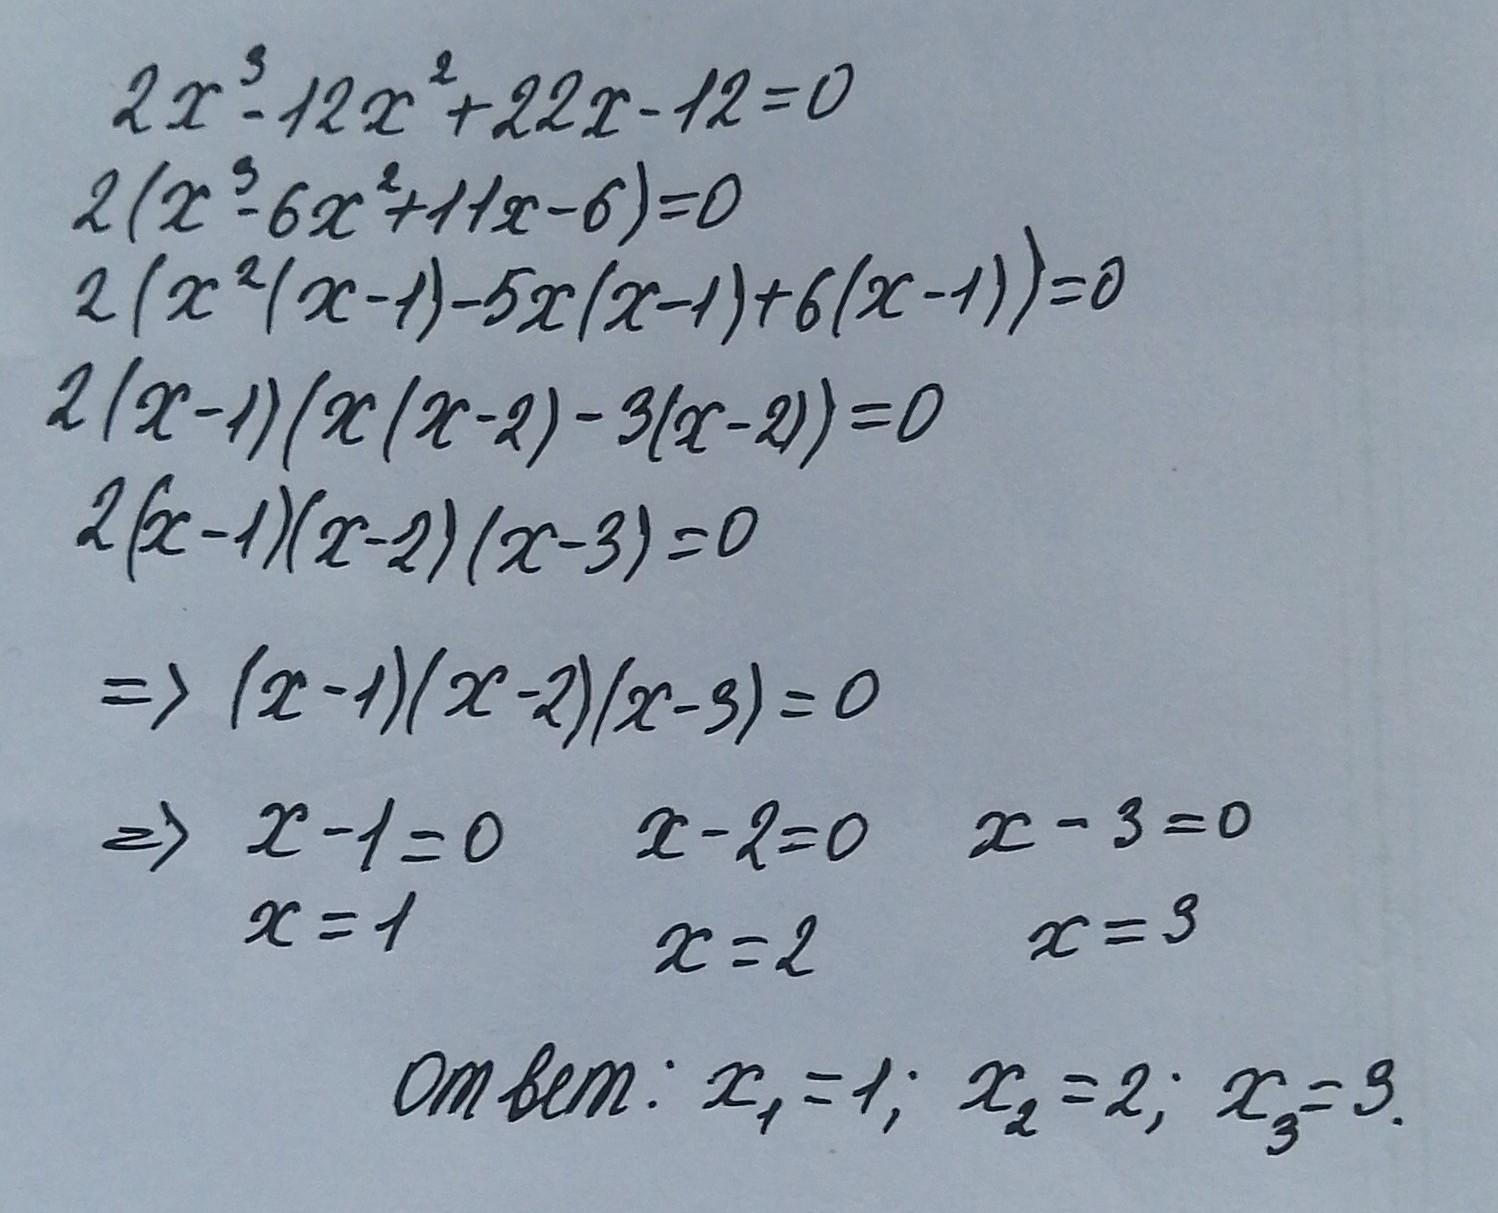 2x³-12x²+22x-12=0
2(x³-6x²+11x-6)=0
2(x²(x-1)-5x(x-1)+6(x-1))=0
2(x-1)(x(x-2)-3(x-2))=0
2(x-1)(x-2)(x-3)=0
=> (x-1)(x-2)(x-3)=0
=> x-1=0 x-2=0 x-3=0
x=1 x=2 x=3
ответ: x₁=1; x₂=2; x₃=3.